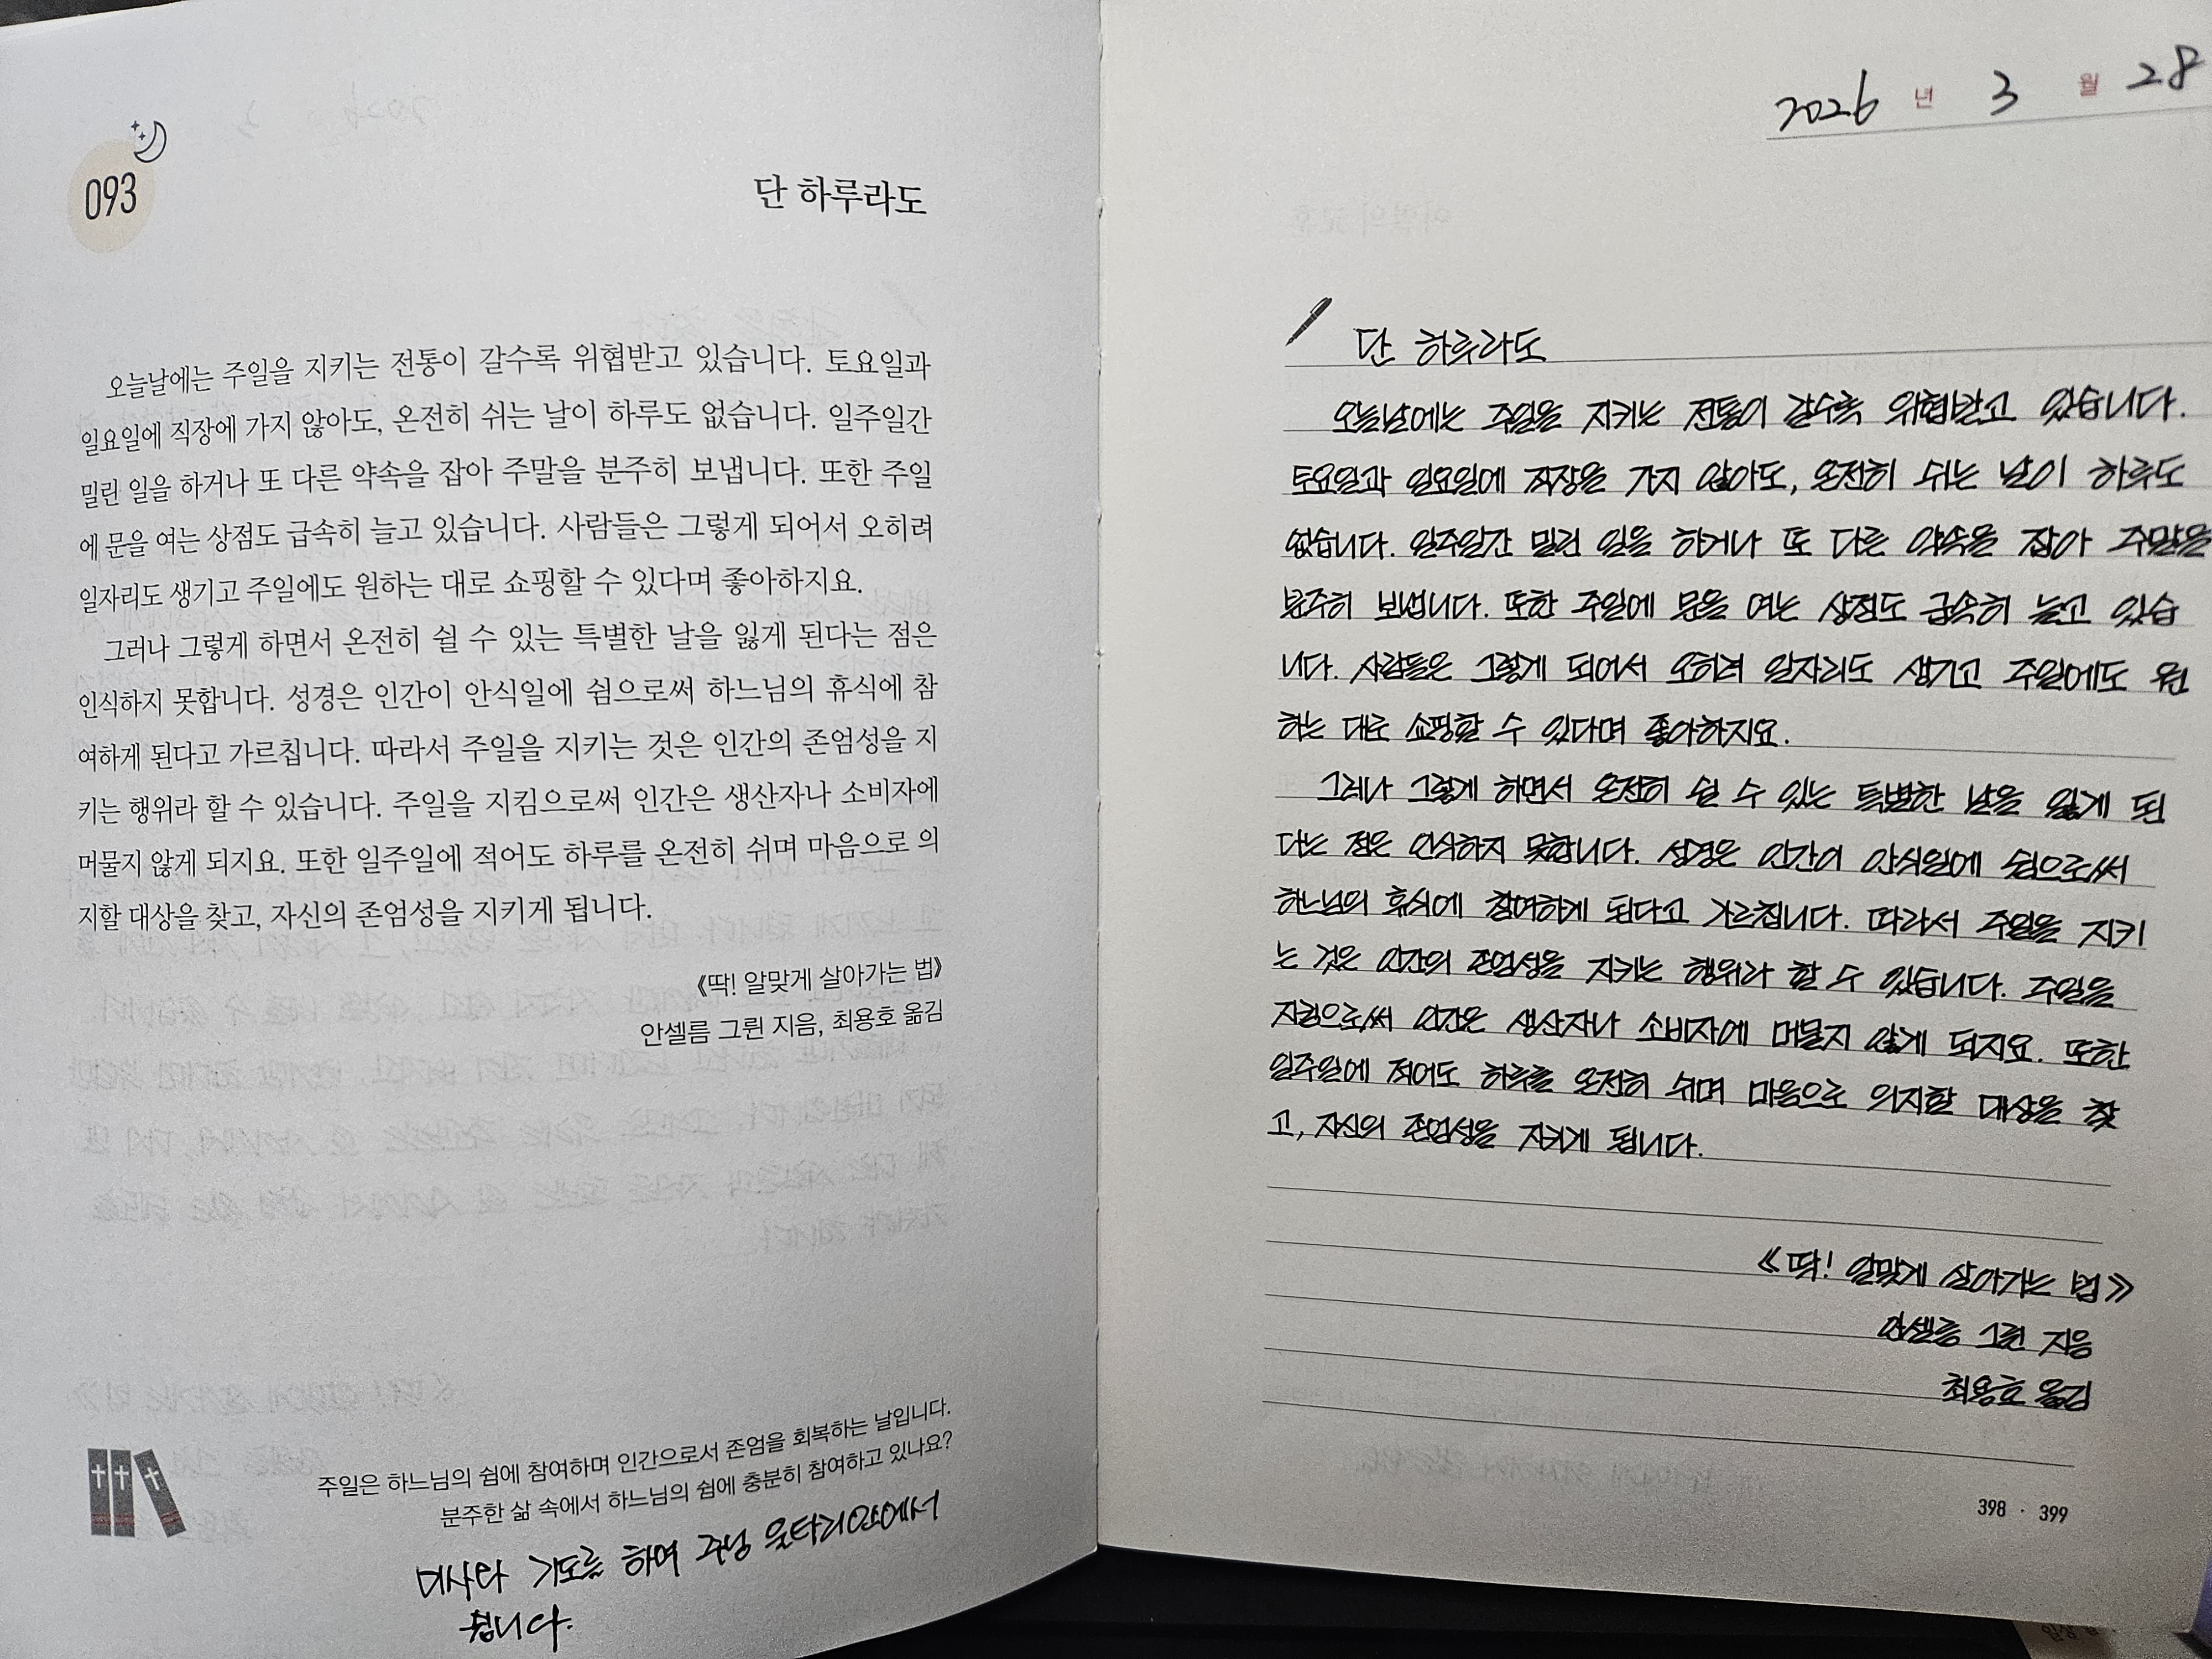 093
단 하루라도
오늘날에는 주일을 지키는 전통이 갈수록 위협받고 있습니다. 토요일과
일요일에 직장에 가지 않아도, 온전히 쉬는 날이 하루도 없습니다. 일주일간
밀린 일을 하거나 또 다른 약속을 잡아 주말을 분주히 보냅니다. 또한 주일
에 문을 여는 상점도 급속히 늘고 있습니다. 사람들은 그렇게 되어서 오히려
일자리도 생기고 주일에도 원하는 대로 쇼핑할 수 있다며 좋아하지요.
그러나 그렇게 하면서 온전히 쉴 수 있는 특별한 날을 잃게 된다는 점은
인식하지 못합니다. 성경은 인간이 안식일에 쉼으로써 하느님의 휴식에 참
여하게 된다고 가르칩니다. 따라서 주일을 지키는 것은 인간의 존엄성을 지
키는 행위라 할 수 있습니다. 주일을 지킴으로써 인간은 생산자나 소비자에
머물지 않게 되지요. 또한 일주일에 적어도 하루를 온전히 쉬며 마음으로 의
지할 대상을 찾고, 자신의 존엄성을 지키게 됩니다.
《딱! 알맞게 살아가는 법》
안셀름 그륀 지음, 최용호 옮김
주일은 하느님의 쉼에 참여하며 인간으로서 존엄을 회복하는 날입니다.
분주한 삶 속에서 하느님의 쉼에 충분히 참여하고 있나요?
미사와 기도를 하여 주님 울타리안에서
쉽니다.
2026 년 3 월 28
단 하루라도
오늘날에는 주일을 지키는 전통이 갈수록 위협받고 있습니다.
토요일과 일요일에 직장을 가지 않아도, 온전히 쉬는 날이 하루도
없습니다. 일주일간 밀린 일을 하거나 또 다른 약속을 잡아 주말을
분주히 보냅니다. 또한 주일에 문을 여는 상점도 급속히 늘고 있습
니다. 사람들은 그렇게 되어서 오히려 일자리도 생기고 주일에도 원
하는 대로 쇼핑할 수 있다며 좋아하지요.
그러나 그렇게 하면서 온전히 쉴 수 있는 특별한 날을 잃게 된
다는 점은 인식하지 못합니다. 성경은 인간이 안식일에 쉼으로써
하느님의 휴식에 참여하게 된다고 가르칩니다. 따라서 주일을 지키
는 것은 인간의 존엄성을 지키는 행위라 할 수 있습니다. 주일을
지킴으로써 인간은 생산자나 소비자에 머물지 않게 되지요. 또한
일주일에 적어도 하루를 온전히 쉬며 마음으로 의지할 대상을 찾
고, 자신의 존엄성을 지키게 됩니다.
《딱! 알맞게 살아가는 법》
안셀름 그륀 지음
최용호 옮김
398 · 399